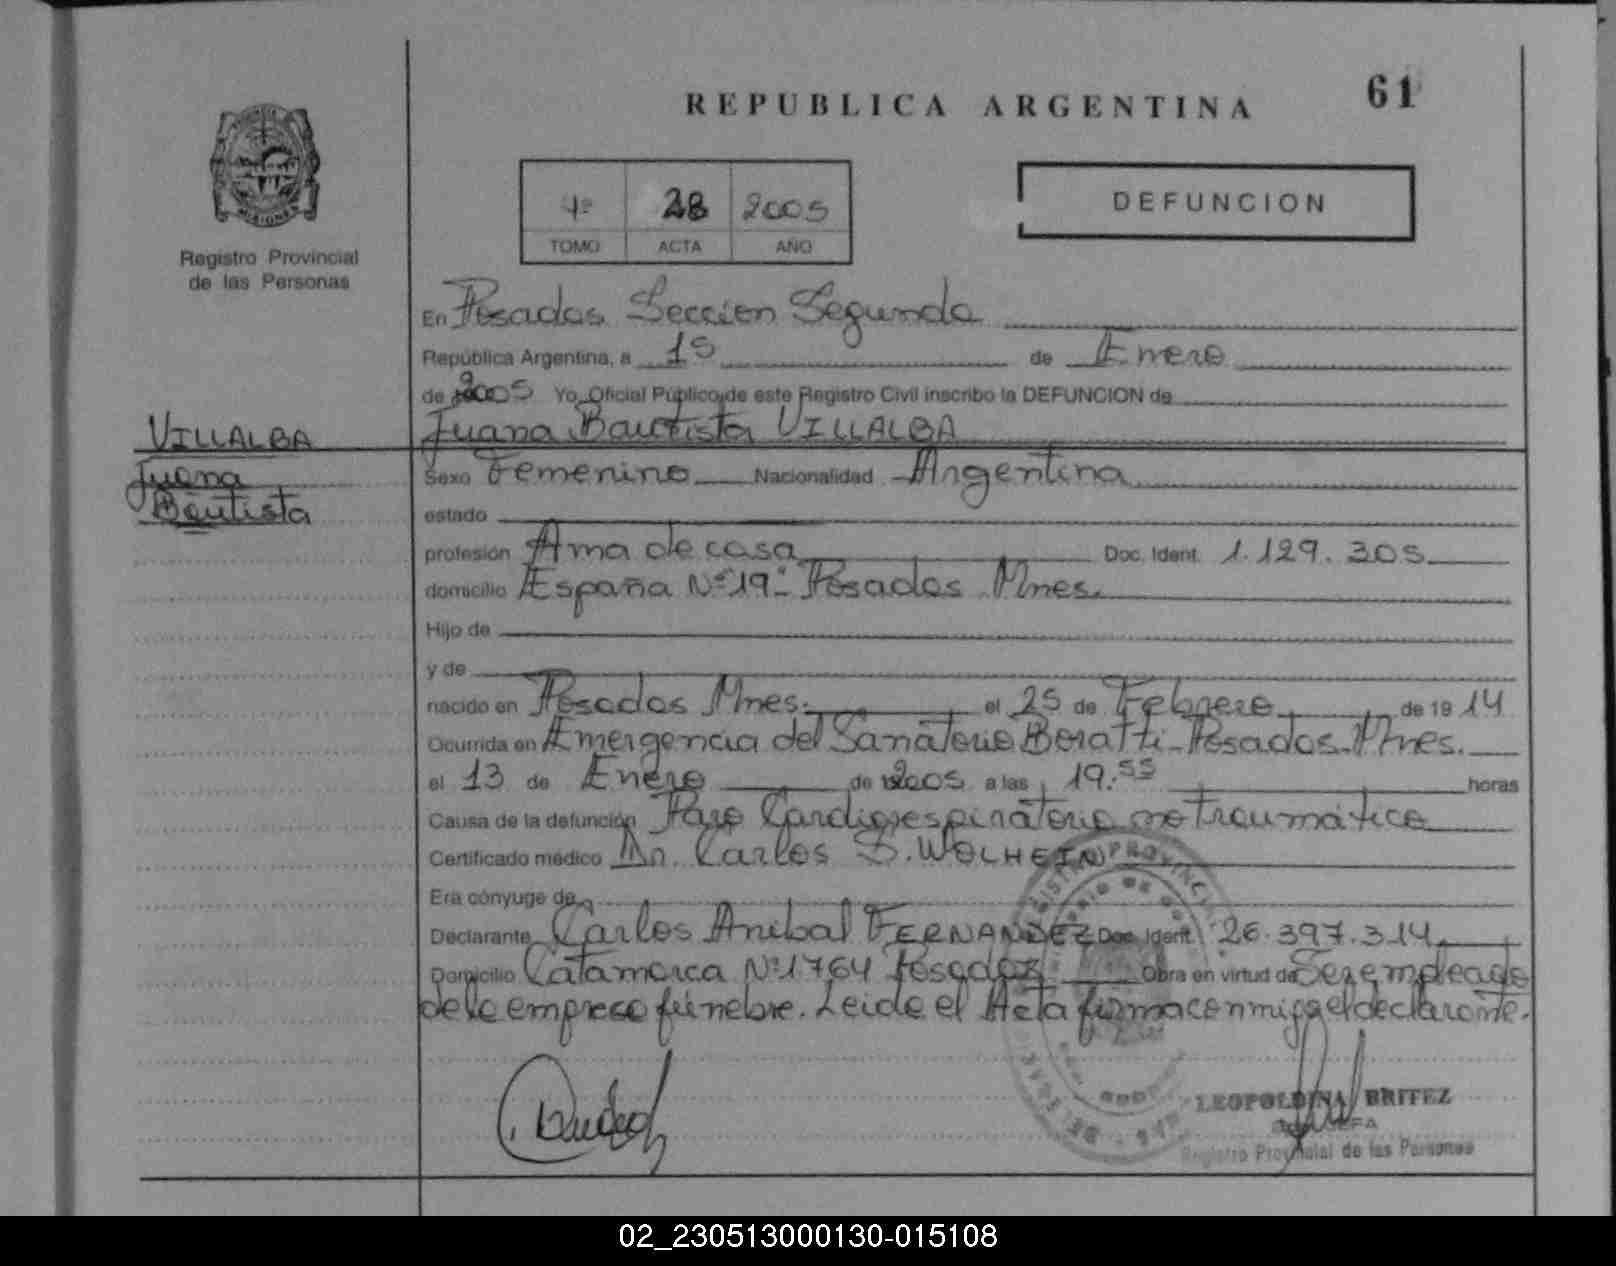 REPUBLICA ARGENTINA
61
1º 28 2005
TOMO ACTA AÑO
DEFUNCION
MISIONES
Registro Provincial
de las Personas
En Posadas Sección Segunda
República Argentina, a 15 de Enero
de 2005 Yo, Oficial Público de este Registro Civil inscribo la DEFUNCION de
Juana Bautista VILLALBA
VILLALBA
Juana
Bautista
Sexo Femenino Nacionalidad Argentina
estado
profesión Ama de casa Doc. Ident. 1.129.305
domicilio España Nº 19 - Posadas Mnes.
Hijo de
y de
nacido en Posadas Mnes. el 25 de Febrero de 19 14
Ocurrida en Emergencia del Sanatorio Boratti - Posadas - Mnes.
el 13 de Enero de 2005 a las 19.55 horas
Causa de la defunción Paro Cardiorespiratorio no traumático
Certificado médico Dr. Carlos S. WOLHEIN
Era cónyuge de
Declarante Carlos Anibal FERNANDEZ Doc. Ident. 26.397.314
Domicilio Catamarca Nº 1764 Posadas Obra en virtud de Ser empleado
de la empresa fúnebre. Leida el Acta firma conmigo el declarante.
LEOPOLDINA BRITEZ
JEFA
Registro Provincial de las Personas
02_230513000130-015108